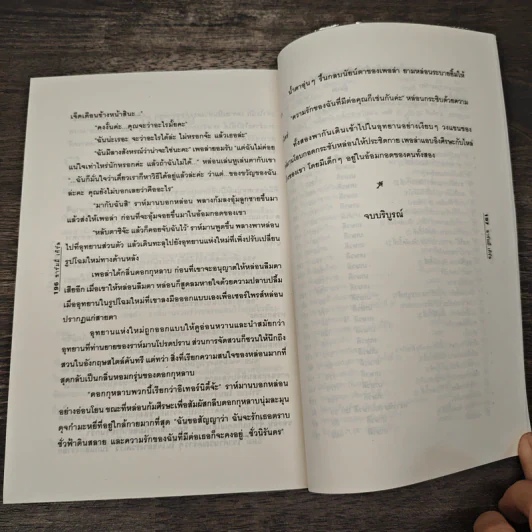 เจ็ดเดือนข้างหน้าสินะ..."
"คงงั้นค่ะ...คุณจะว่าอะไรมั้ยคะ"
"ฉันน่ะเรอะ จะว่าอะไรได้ล่ะ ไม่หรอกจ้ะ แล้วเธอล่ะ"
"ฉันมีลางสังหรณ์ว่าน่าจะใช่นะคะ" เพอล่ายอมรับ "แต่ฉันไม่ค่อย
แน่ใจเท่าไหร่นักหรอกค่ะ แล้วถ้าฉันไม่ได้..." หล่อนเล่นหูเล่นตากับเขา
"...ฉันก็มั่นใจว่าเดี๋ยวเราก็หาวิธีได้อยู่แล้วล่ะค่ะ ว่าแต่...ของขวัญของฉัน
ล่ะคะ คุณยังไม่บอกเลยว่าคืออะไร"
"มากับฉันสิ" ราห์มานบอกหล่อน พลางก้มลงอุ้มลูกชายขึ้นมา
แล้วส่งให้เพอล่า ก่อนที่จะอุ้มจอยขึ้นมาในอ้อมกอดของเขา
"หลับตาซิจ๊ะ แล้วก็คอยจับฉันไว้" ราห์มานพูดขึ้น พลางพาหล่อน
ไปที่อุทยานส่วนตัว แล้วเดินทะลุไปยังอุทยานแห่งใหม่ที่เพิ่งปรับเปลี่ยน
รูปโฉมใหม่ทางด้านหลัง
เพอล่าได้กลิ่นดอกกุหลาบ ก่อนที่เขาจะอนุญาตให้หล่อนลืมตา
เสียอีก เมื่อเขาให้หล่อนลืมตา หล่อนก็สูดลมหายใจด้วยความปลาบปลื้ม
เมื่ออุทยานในรูปโฉมใหม่ที่เขาลงมือออกแบบเองเพื่อเซอร์ไพรส์หล่อน
ปรากฏแก่สายตา
อุทยานแห่งใหม่ถูกออกแบบให้ดูอ่อนหวานและนำสมัยกว่า
อุทยานที่ท่านยายของราห์มานโปรดปราน ส่วนการจัดสวนก็ชวนให้นึกถึง
สวนในอังกฤษสไตล์คันทรี แต่ทว่า สิ่งที่เรียกความสนใจของหล่อนมากที่
สุดกลับเป็นกลิ่นหอมกรุ่นของดอกกุหลาบ
"ดอกกุหลาบพวกนี้เรียกว่าอีเทอร์นิตี้จ้ะ" ราห์มานบอกหล่อน
อย่างอ่อนโยน ขณะที่หล่อนก้มศีรษะเพื่อสัมผัสกลีบดอกกุหลาบนุ่มละมุน
ดุจกำมะหยี่ที่อยู่ใกล้กายมากที่สุด "ฉันขอสัญญาว่า ฉันจะรักเธอตราบ
ชั่วฟ้าดินสลาย และความรักของฉันที่มีต่อเธอก็จะคงอยู่...ชั่วนิรันดร"
น้ำตาอุ่นๆ ขึ้นกลบนัยน์ตาของเพอล่า ยามหล่อนระบายยิ้มให้
"ความรักของฉันที่มีต่อคุณก็เช่นกันค่ะ" หล่อนกระซิบด้วยความ
ทั้งสองพากันเดินเข้าไปในอุทยานอย่างเงียบๆ วงแขนของ
โอบกอดกระชับหล่อนให้ประชิดกาย เพอล่าแอบอิงศีรษะกับไหล่
โดยมีเด็กๆ อยู่ในอ้อมกอดของคนทั้งสอง
จบบริบูรณ์